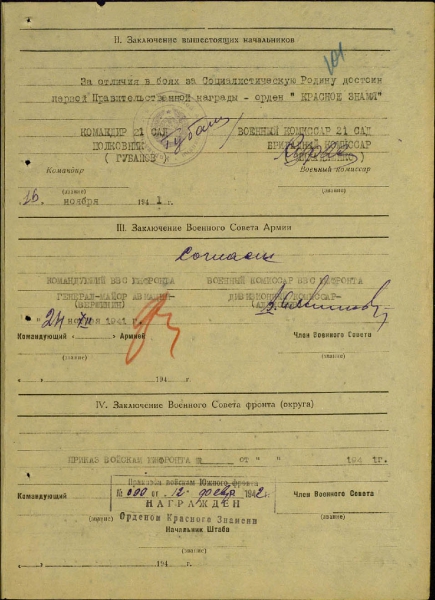 101
II. Заключение вышестоящих начальников
За отличия в боях за Социалистическую Родину достоин
первой Правительственной награды - орден " КРАСНОЕ ЗНАМЯ"
КОМАНДИР 21 САД ВОЕННЫЙ КОМИССАР 21 САД
ПОЛКОВНИК БРИГАДНЫЙ КОМИССАР
( ГУБАНОВ )
Командир Военный Комиссар
(звание) (звание)
ноября 1941 г.
III. Заключение Военного Совета Армии
Согласны
КОМАНДУЮЩИЙ ВВС ЮЖФРОНТА ВОЕННЫЙ КОМИССАР ВВС ЮЖФРОНТА
ГЕНЕРАЛ-МАЙОР АВИАЦИИ ДИВИЗИОННЫЙ КОМИССАР
(ВЕРШИНИН)
" 24 " 1941 г.
Командующий Армией Член Военного Совета
(звание) (звание)
« » 194 г.
IV. Заключение Военного Совета фронта (округа)
ПРИКАЗ ВОЙСКАМ ЮЖФРОНТА № от " " 1941г.
Приказом войскам Южного фронта
от 12 1942 г.
Командующий НАГРАЖДЕН Член Военного Совета
(звание) Орденом Красного Знамени (звание)
Начальник Штаба
(звание)
« » 194 г.